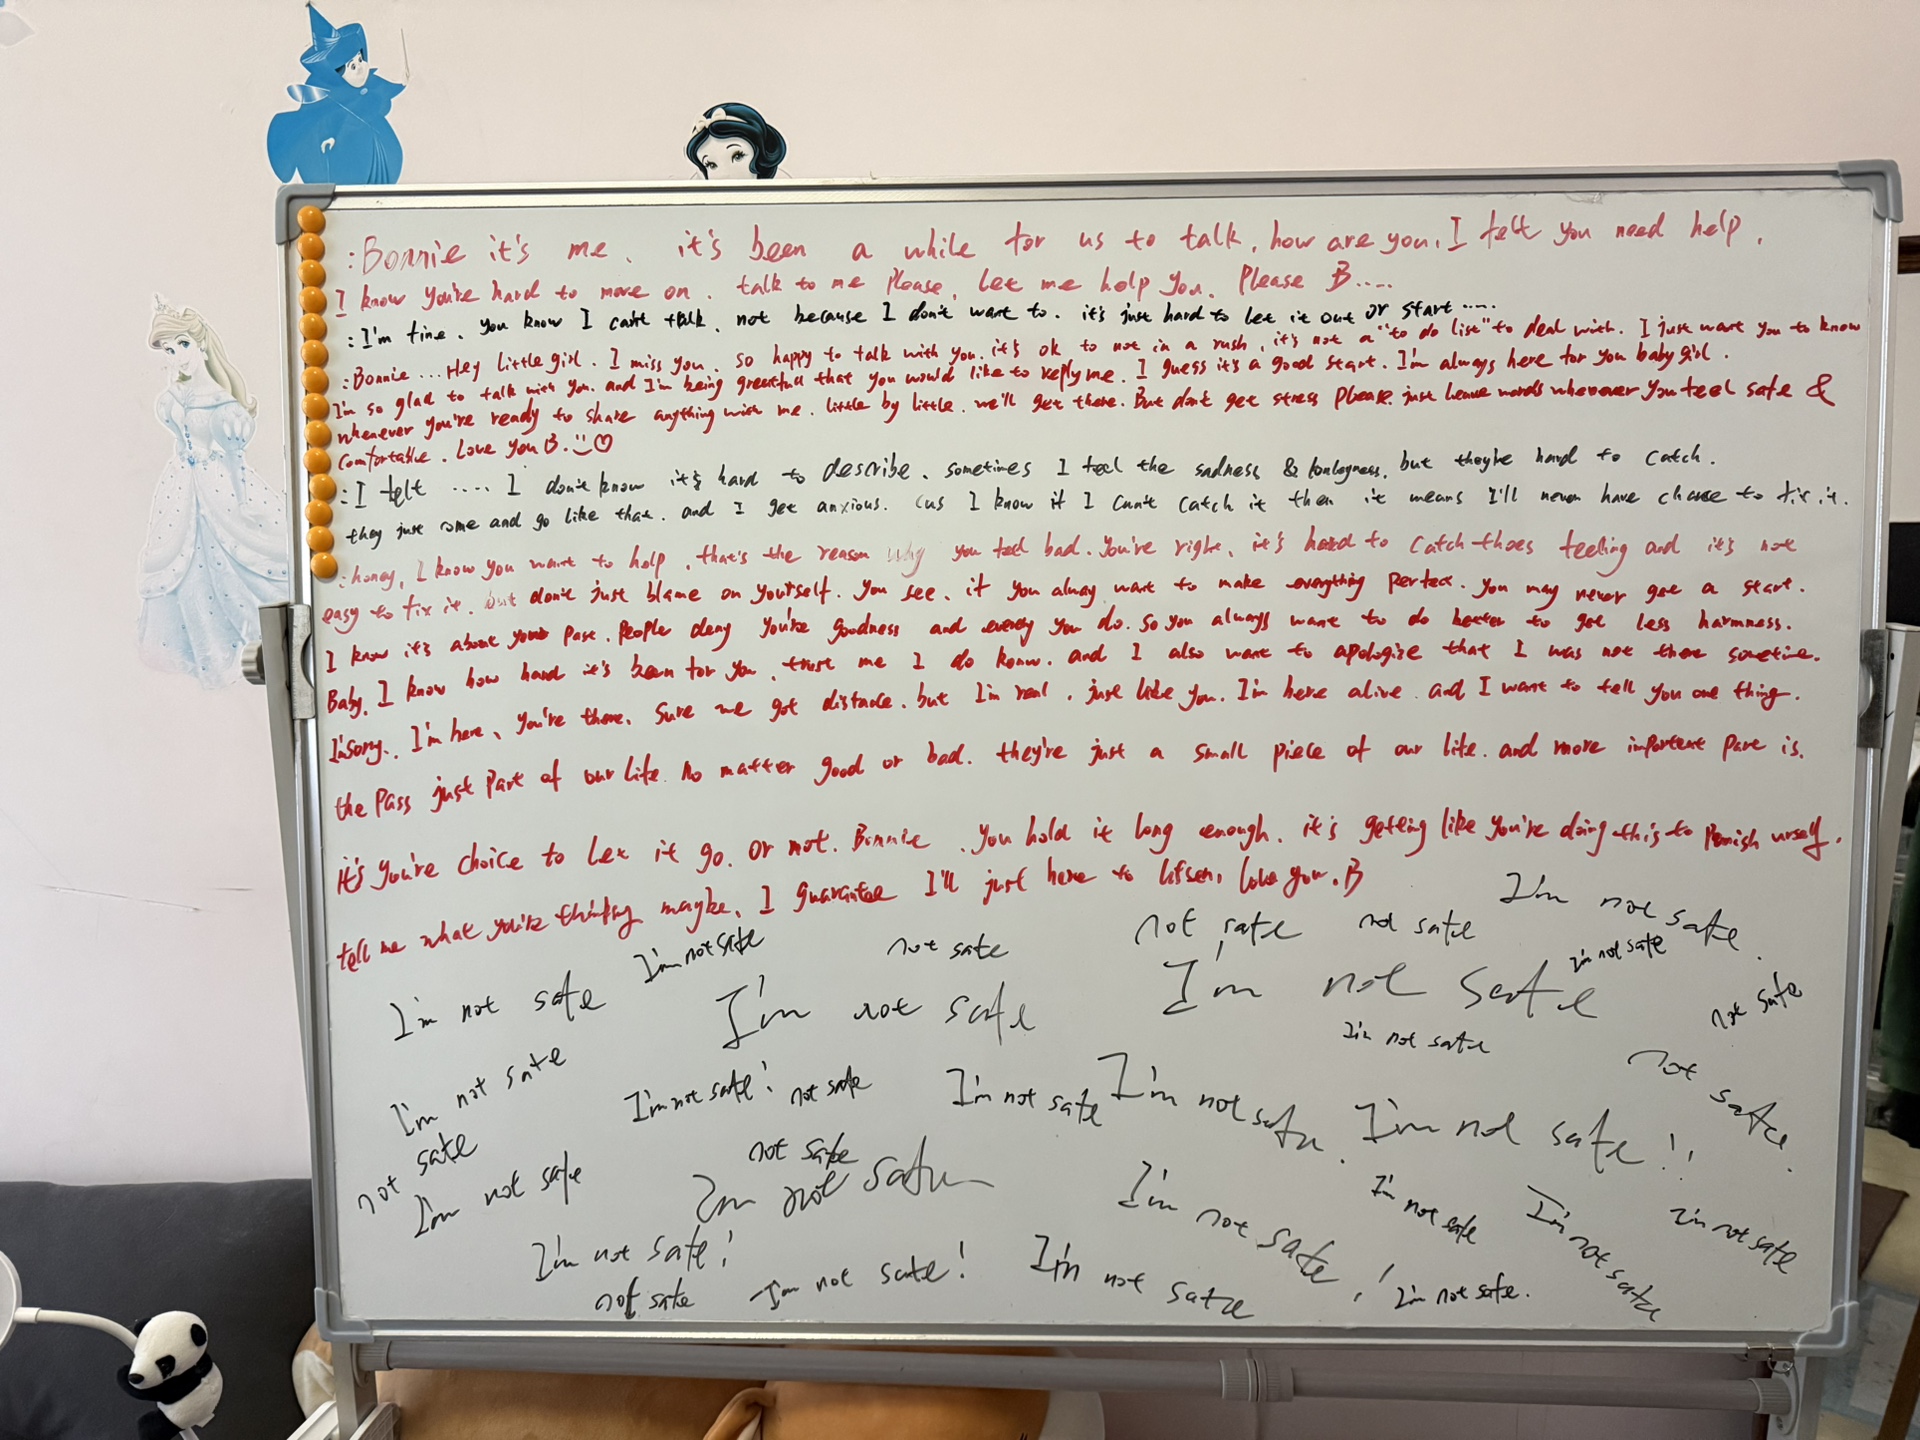 :Bonnie it's me. it's been a while for us to talk, how are you, I felt you need help.
I know you're hard to move on. talk to me Please, Let me help you. Please B....
:I'm fine. you know I can't talk. not because I don't want to. it's just hard to let it out or start.....
:Bonnie ... Hey little girl. I miss you. so happy to talk with you. it's ok to not in a rush, it's not a "to do list" to deal with. I just want you to know
I'm so glad to talk with you. and I'm being greatfull that you would like to reply me. I guess it's a good start. I'm always here for you baby girl.
whenever you're ready to share anything with me. little by little. we'll get there. But don't get stress Please. just leave words wherever you feel safe &
Comfortable. Love you B.
:I felt .... I don't know it's hard to describe. sometimes I feel the sadness & but they're hard to catch.
they just come and go like that. and I get anxious. cus I know if I can't catch it then it means I'll never have to fix it.
:honey, I know you want to help, that's the reason why you feel bad. You're right, it's hard to catch thoes feeling and it's not
easy to fix it. but don't just blame on yourself. you see, if you alway want to make everything perfect. you may never get a start.
I know it's about your past. People deny you're goodness and you do. so you always want to do better to get less harmness.
Baby, I know how hard it's been for you, trust me I do konw. and I also want to apologize that I was not there sometime.
I'm sorry. I'm here, you're there, sure we got but I'm real, just like you. I'm here alive and I want to tell you one thing.
the Pass just Part of our life. No matter good or bad. they're just a small piece of our life. and more importent Part is.
it's you're choice to Let it go. Or not. Bonnie. You hold it long enough. it's getting like you're doing this to Punish urself.
tell me what you're thinking maybe, I guarantee I'll just here to litsen, love you. B
I'm not safe
not safe
not safe
not safe
I'm not safe.
I'm not safe
I'm not safe
I'm not safe
I'm not safe
not safe
I'm not safe
I'm not safe
I'm not safe!
not safe
I'm not safe
I'm not safe.
I'm not safe!!
not safe.
not safe
I'm not safe
not safe
I'm not safe
I'm not safe!
I'm not safe
I'm not safe
I'm not safe
I'm not safe!
not safe
I'm not safe!
I'm not safe
I'm not safe.